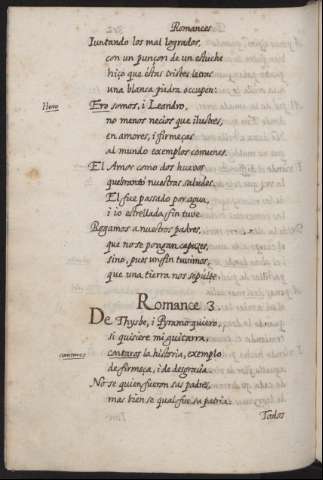 Romances
Iuntando los mal logrados,
con un punçon de un estuche
hiço que estas tristes letras
una blanca piedra ocupen:
Hero
Ero somos, i Leandro,
no menos necios que ilustres,
en amores, i firmeças
al mundo exemplos comunes.
El Amor como dos huevos
quebrantò nuestras saludes.
El fue passado por agua,
i io estrellada, fin tuve
Rogamos a nuestros padres,
que no se pongan capuzes,
sino, pues un fin tuvimos,
que una tierra nos sepulte.
Romance 3.
De Thysbe, i Pyramo quiero,
si quisiere mi guitarra,
cantaros
cantaros la historia, exemplo
de firmeça, i de desgracia
No se quien fueron sus padres,
mas bien se qual fue su patria.
Todos